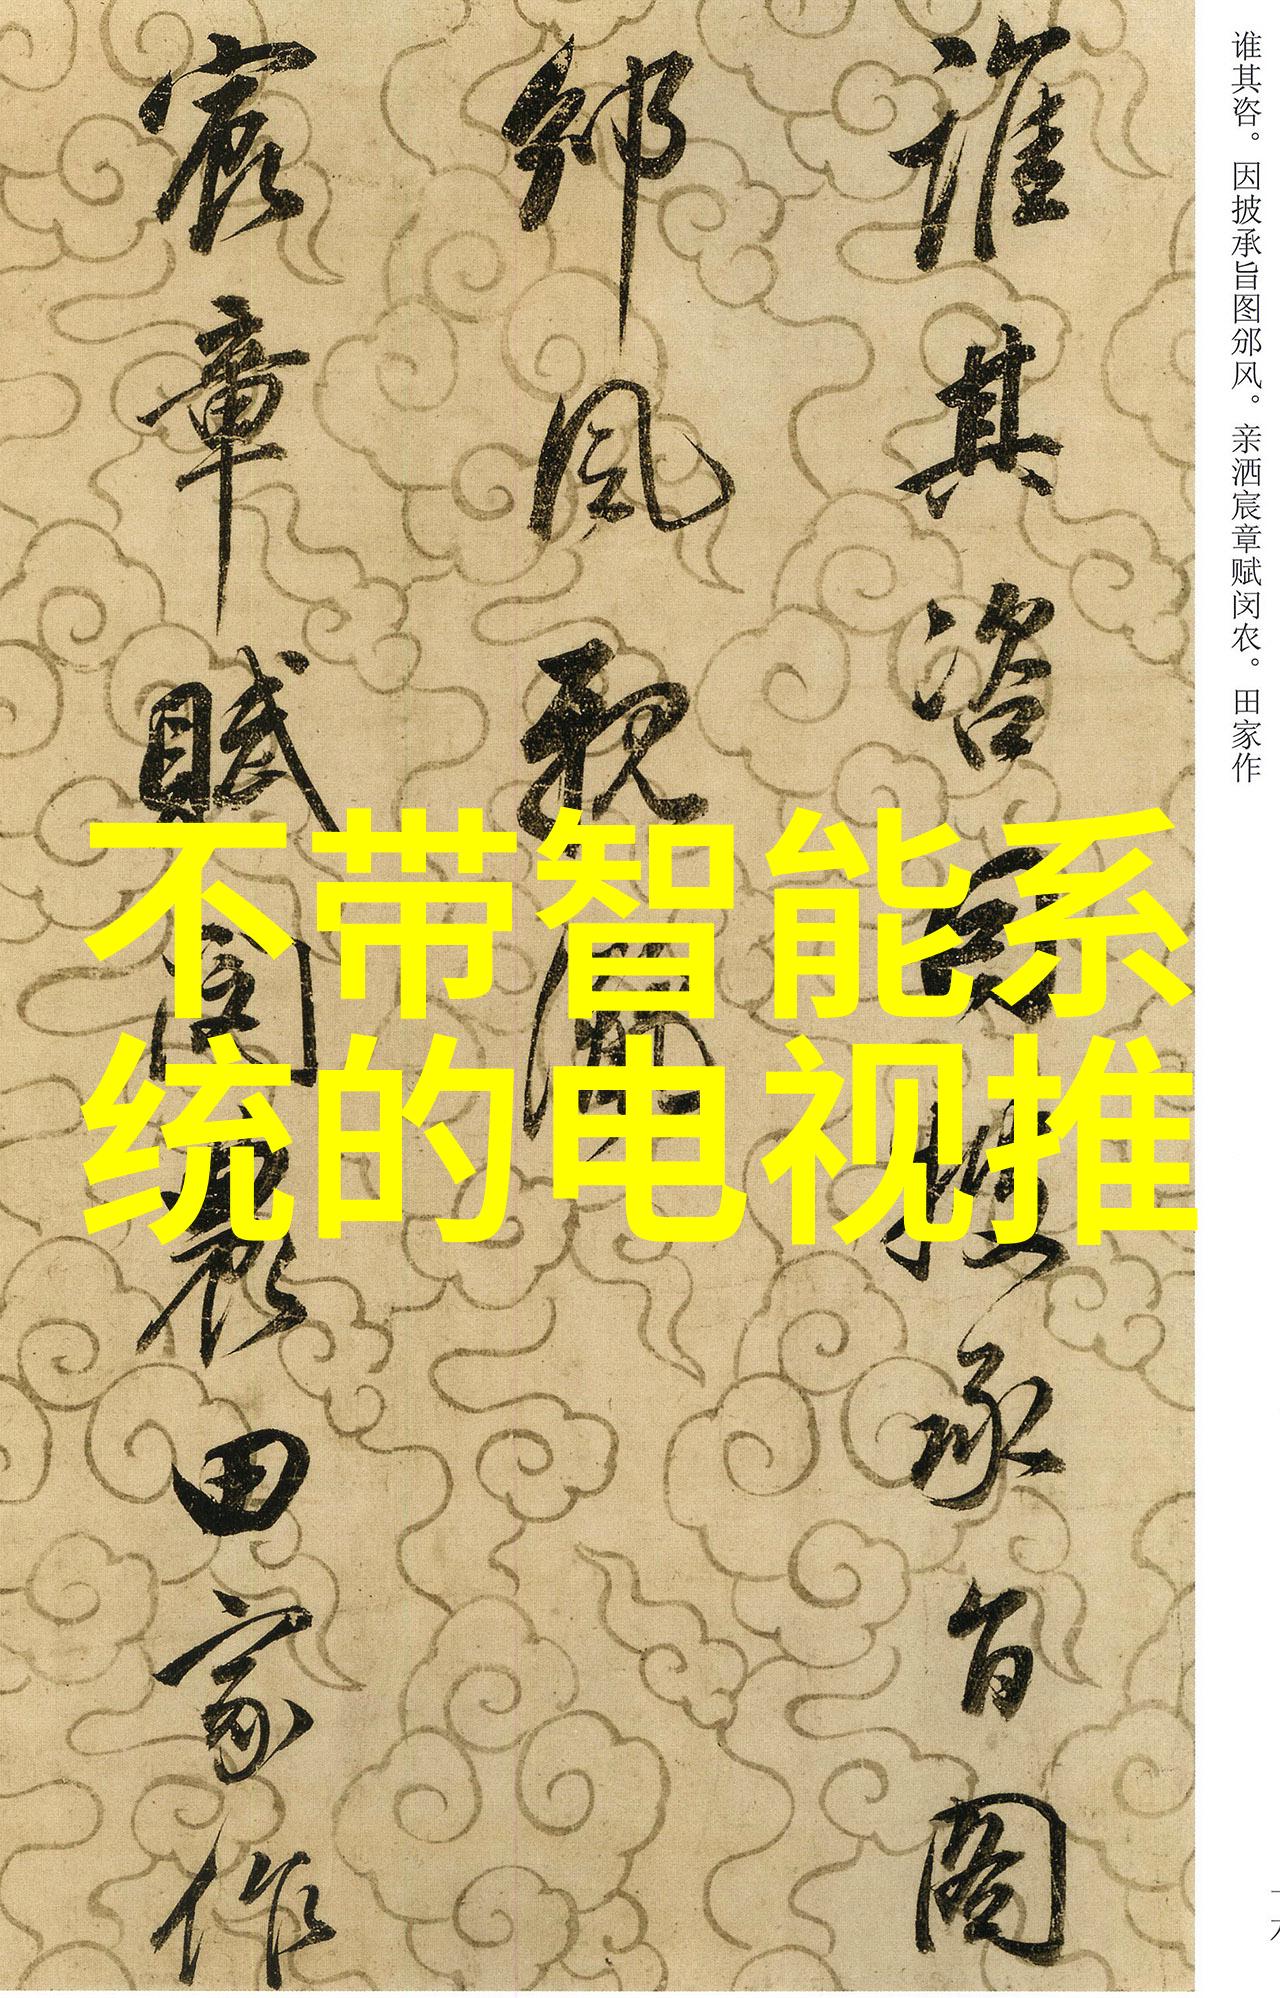 谁其咨。因披承旨图邠风。亲洒宸章赋闵农。田家作
誰其咨因披承旨圖
邠風親灑
宸章賦閔農田家作
不带智能系
统的电视推